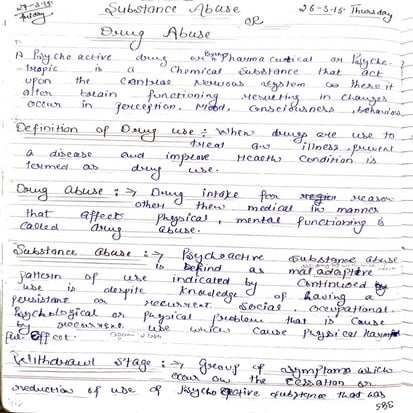 27-3-15 Friday Substance Abuse 26-3-15 Thursday
OR
Drug Abuse
A Psycho active drug or pharmaceutical or Psycho-
tropic is a Chemical Substance that act
upon the Central nervous system there it
alter brain functioning resulting in changes
occur in perception. Mood, consciousness, behaviour
Definition of Drug use :- When drugs are use to
treat an illness, prevent
a disease and improve Health Condition is
termed as drug use.
Drug abuse :-> Drug intake for reason
other then medical in manner
that affect physical, mental functioning is
called drug abuse.
Substance abuse :-> Psychoactive Substance abuse
is as mal adaptive
pattern of use indicated by Continued
use is despite knowledge of having a
persistant or recurrent social, occupational.
Psychological or physical problem that is cause
by recurrent use which cause physical Harm
ful Effect.
Withdrawl Stage :-> Group of symptoms which
occur on the cessation or
reduction of use of Psycho active substance that was